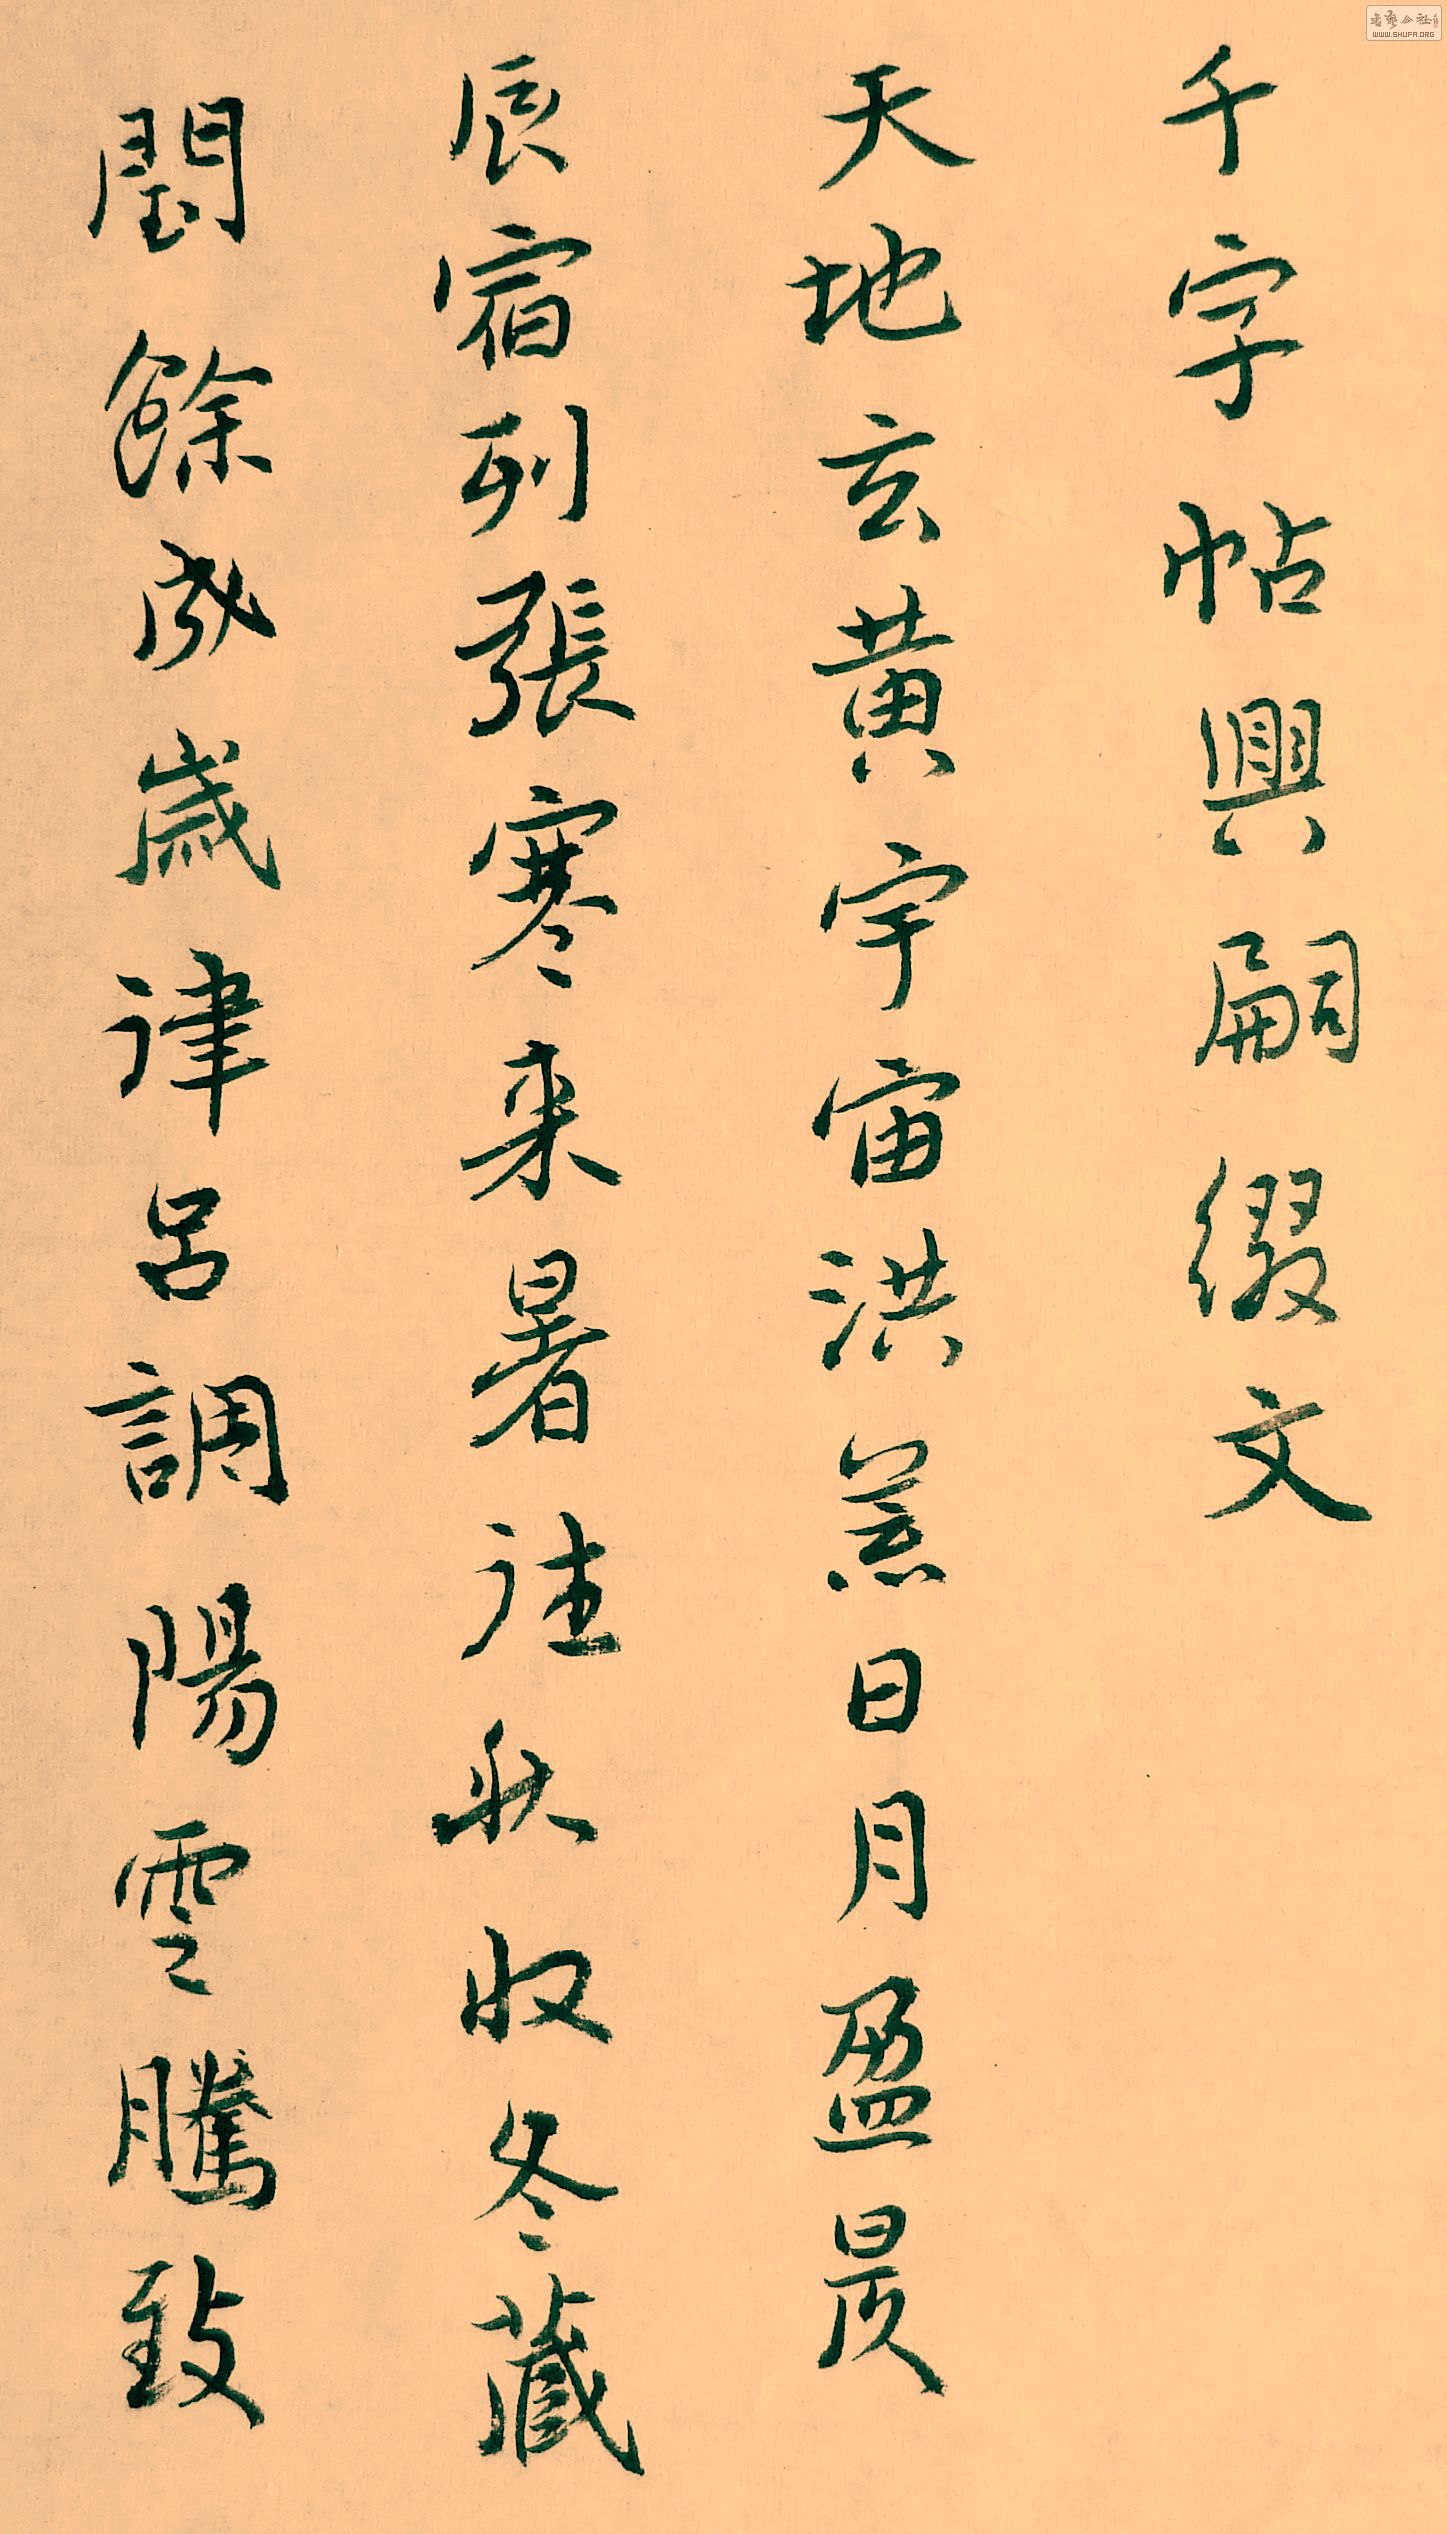 千字帖興嗣缀文
天地玄黄宇宙洪荒日月盈昃
辰宿列張寒来暑往秋收冬藏
閏餘成歲律呂調陽雲騰致
書藝公社
WWW.SHUFA.ORG